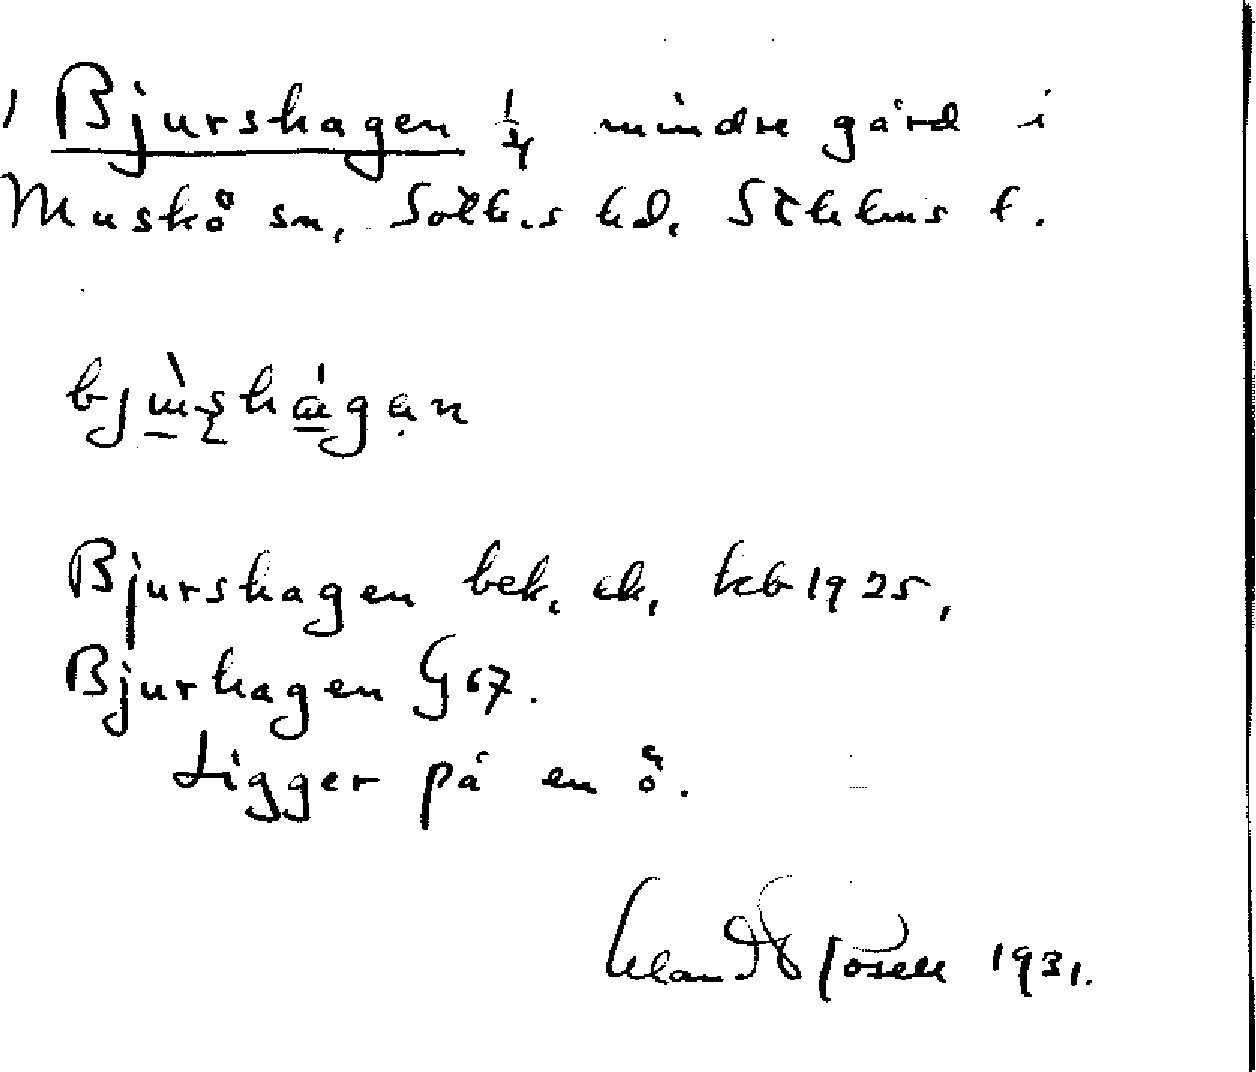 1 Bjurshagen 1/4 mindre gård i
Muskö sn, Soth.s hd, Sthlms l.
bjùʂhágan
Bjurshagen bek. ek, Jeb 1925,
Bjurhagen G 67.
Ligger på en ö.
Rosell 1931.